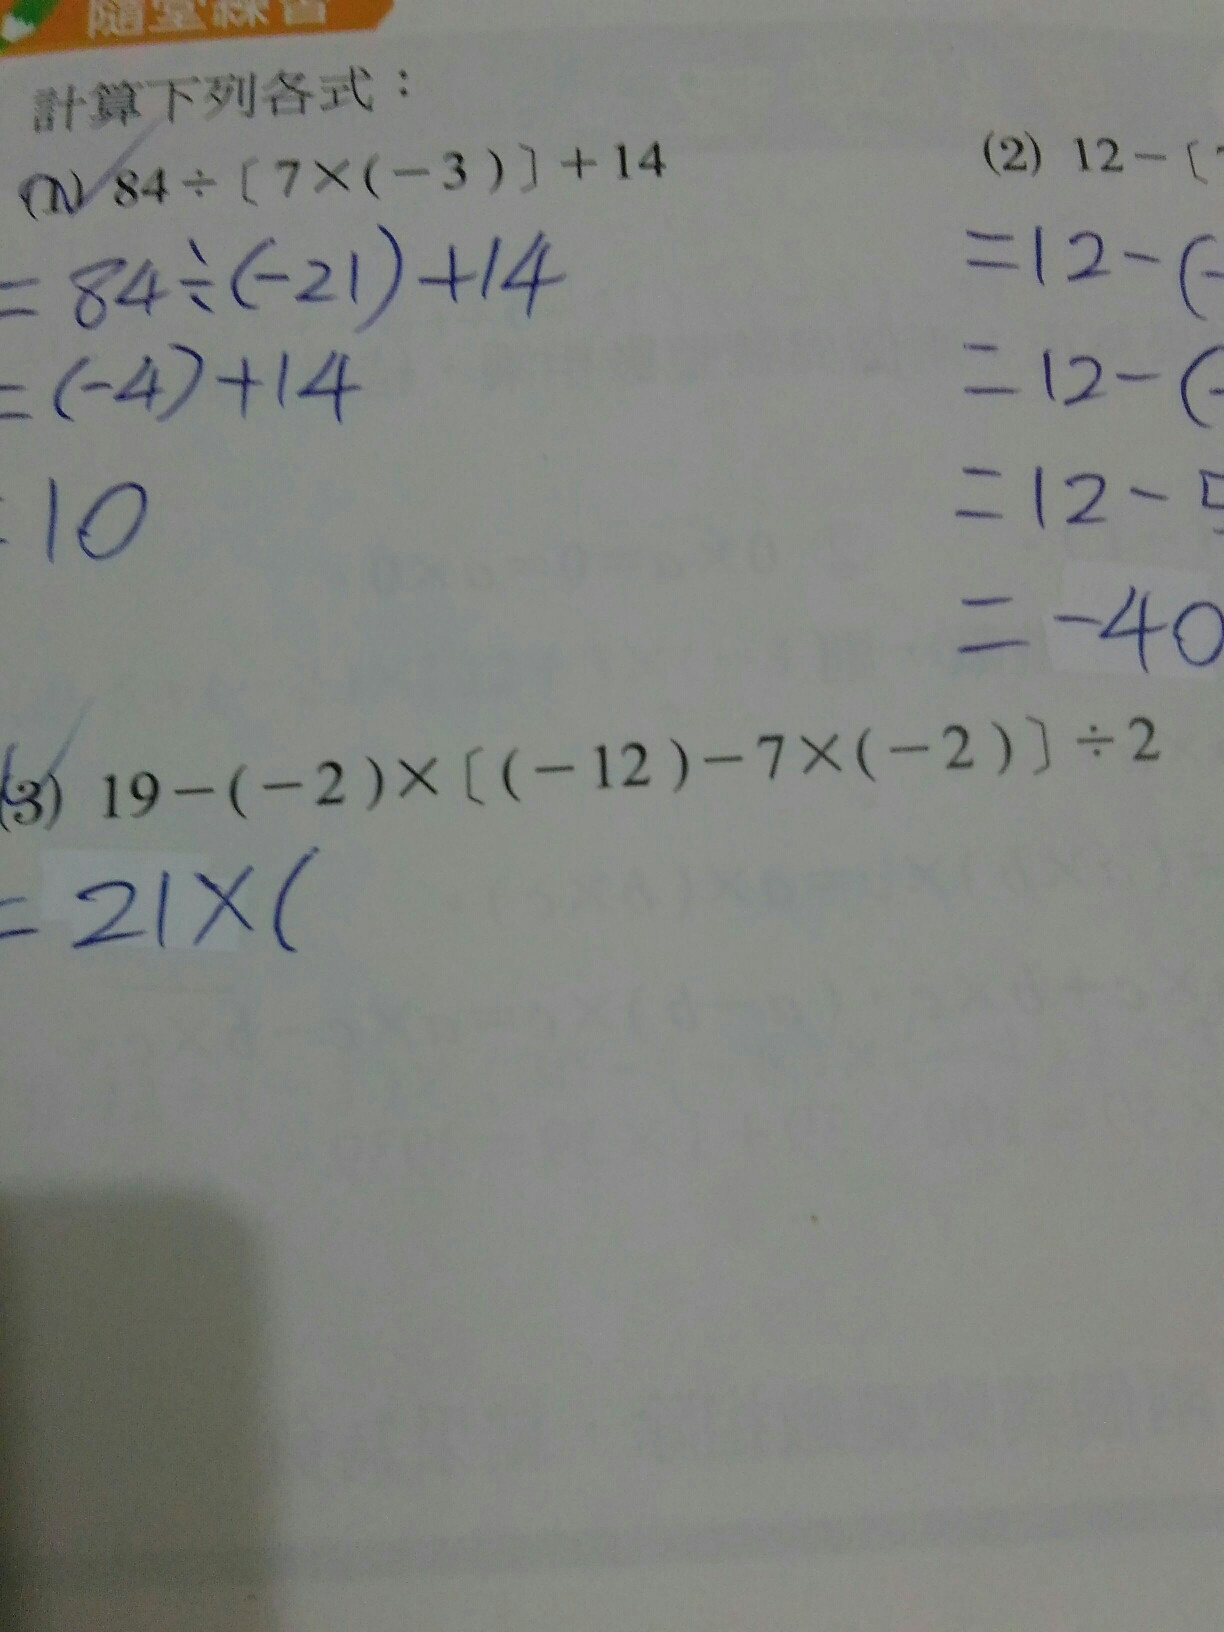 隨堂練習
計算下列各式：
(1) 84÷〔7×(−3)〕+14
=84÷(-21)+14
=(-4)+14
=10
(2) 12−〔
=12-(-
=12-(-
=12-5
=-40
(3) 19−(−2)×〔(−12)−7×(−2)〕÷2
=21×(